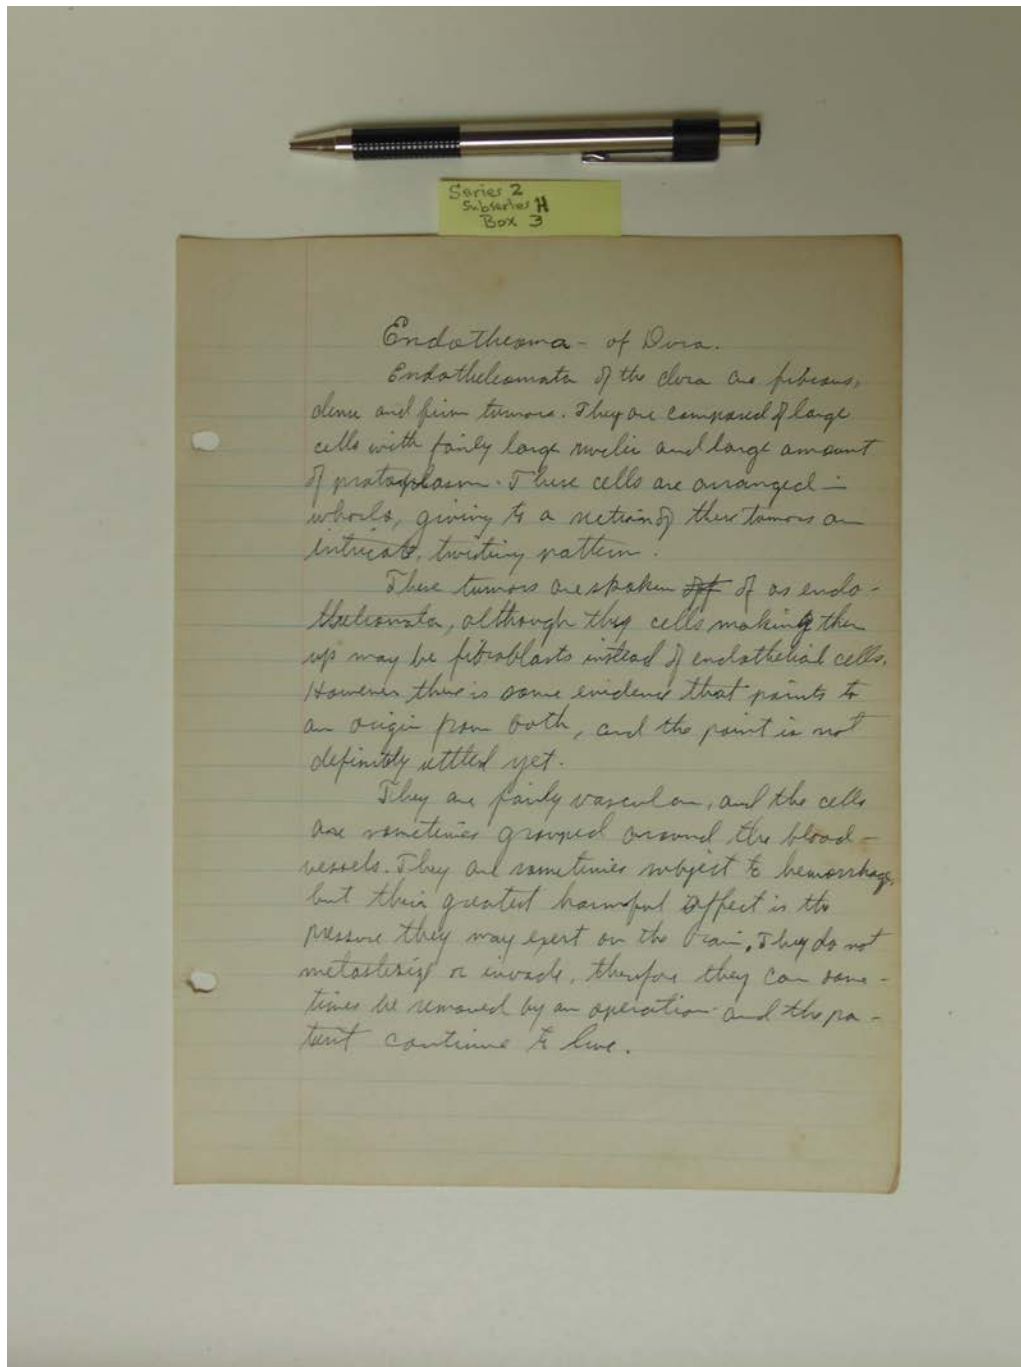 Series 2
Subseries H
Box 3
Endotheoma - of Dura.
Endotheleomata of the dura are fibrous,
dense and firm tumors. They are composed of large
cells with fairly large nuclei and large amount
of protoplasm. These cells are arranged in
whorls, giving to a section of these tumors an
intricate, twisting pattern.
These tumors are spoken of as endo-
theleomata, although the cells making them
up may be fibroblasts instead of endothelial cells.
However there is some evidence that points to
an origin from both, and the point is not
definitly settled yet.
They are fairly vascular, and the cells
are sometimes grouped around the blood-
vessels. They are sometimes subject to hemorrhage,
but their greatest harmful effect is the
pressure they may exert on the brain. They do not
metastesize or invade, therefore they can some-
times be removed by an operation and the pa-
tient continue to live.